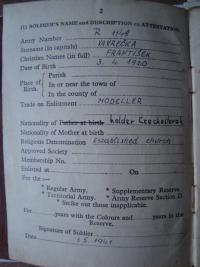 2
(1) SOLDIER'S NAME and DESCRIPTION on ATTESTATION.
Army Number R 1148
Surname (in capitals) VAVREČKA
Christian Names (in full) FRANTIŠEK
Date of Birth 3. 4. 1920
Place of Birth.
Parish
In or near the town of
In the county of
Trade on Enlistment MODELLER
Nationality of Father at birth holder Czechoslovak
Nationality of Mother at birth
Religious Denomination Established church
Approved Society
Membership No.
Enlisted at On
For the :—
* Regular Army. * Supplementary Reserve.
* Territorial Army. * Army Reserve Section D.
* Strike out those inapplicable.
For years with the Colours and years in the
Reserve.
Signature of Soldier
Date 1.5.1941